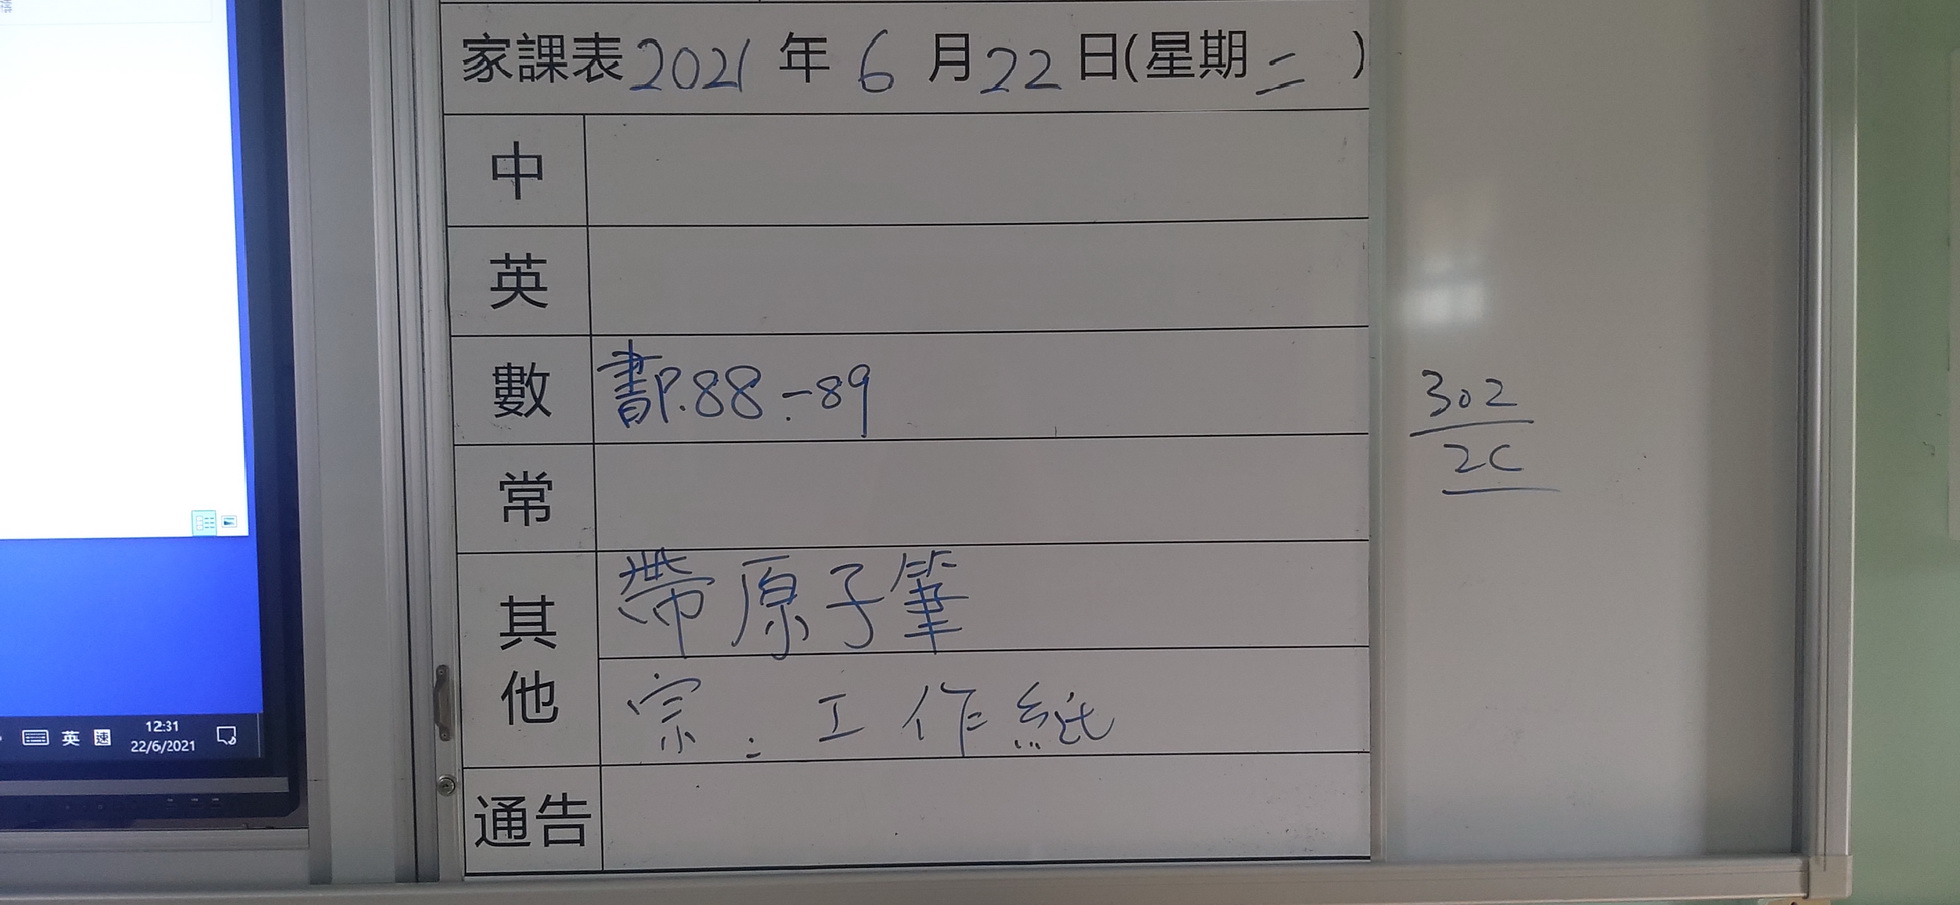 家課表2021年6月22日(星期二)
中
英
數 書P.88-89
常
其他 帶原子筆
宗:工作紙
通告
302
2C
英 速
12:31
22/6/2021